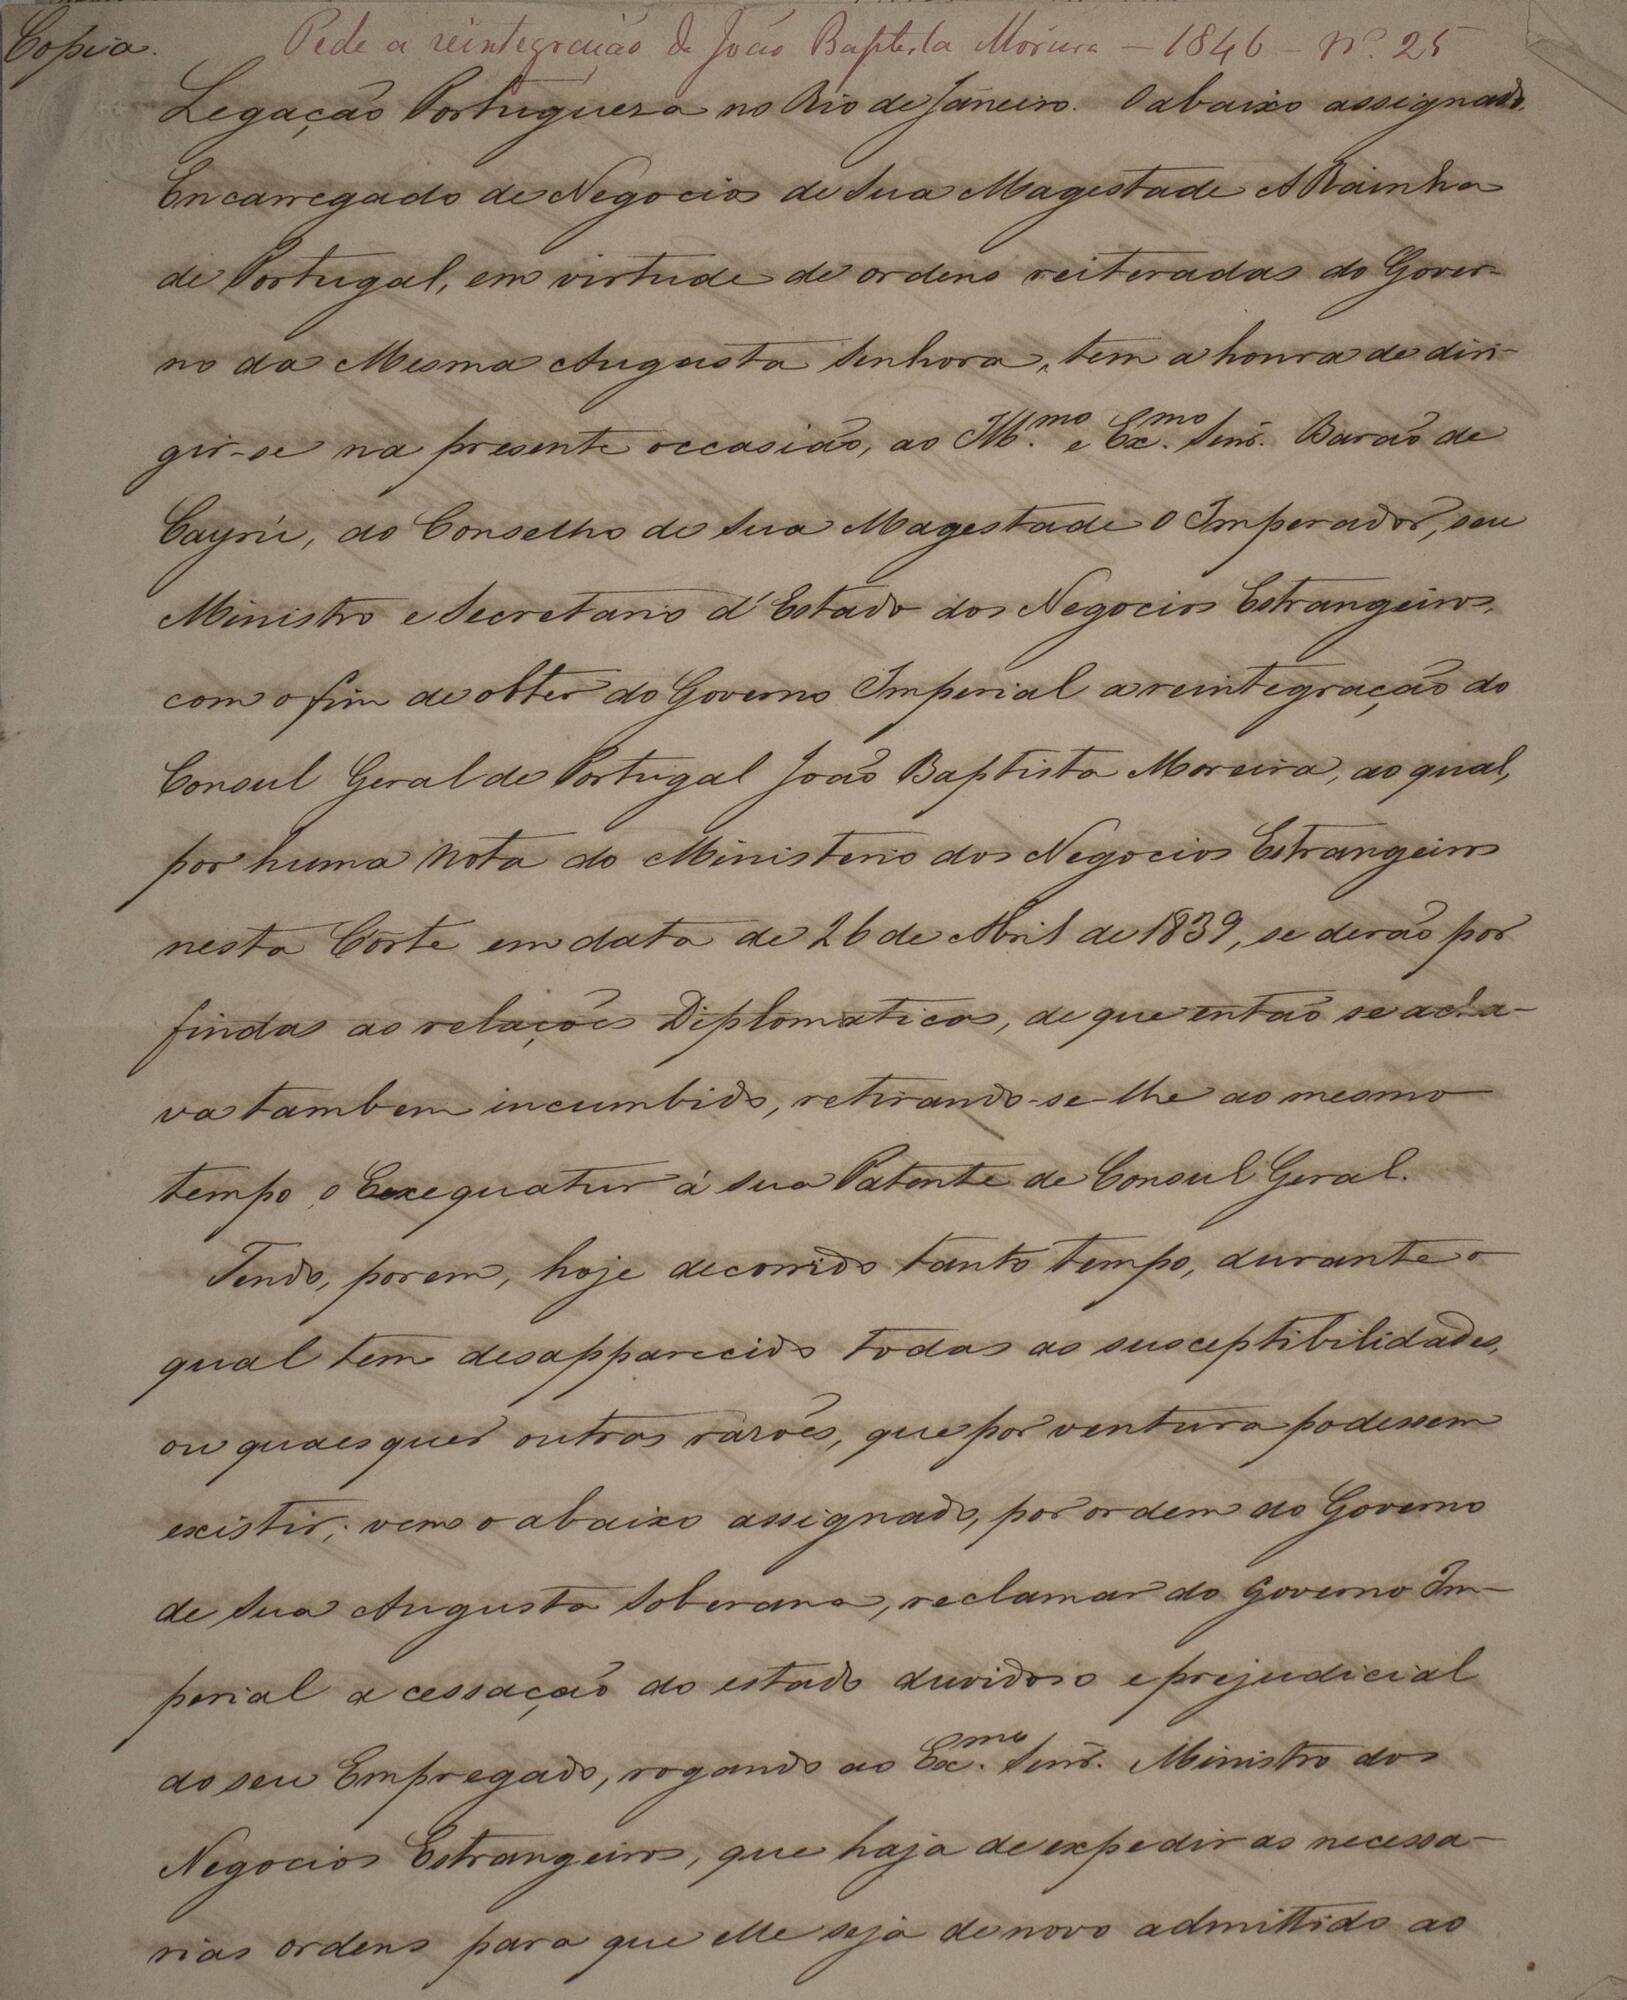 Copia. Pede a reintegração de João Baptista Moreira – 1846 – Nº 25
Legação Portugueza no Rio de Janeiro. O abaixo assignado,
Encarregado de Negocios de Sua Magestade A Rainha
de Portugal, em virtude de ordens reiteradas do Gover-
no da Mesma Augusta Senhora, tem a honra de diri-
gir-se na presente occasião, ao Ill.mo e Ex.mo Senr. Barão de
Cayrú, do Conselho de Sua Magestade O Imperador, seu
Ministro e Secretario d'Estado dos Negocios Estrangeiros,
com o fim de obter do Governo Imperial a reintegração do
Consul Geral de Portugal João Baptista Moreira, ao qual,
por huma Nota do Ministerio dos Negocios Estrangeiros
nesta Côrte em data de 26 de Abril de 1839, se derão por
findas as relações Diplomaticas, de que então se acha-
va tambem incumbido, retirando-se-lhe ao mesmo
tempo o Exequatur á sua Patente de Consul Geral.
Tendo, porem, hoje decorrido tanto tempo, durante o
qual tem desapparecido todas as susceptibilidades,
ou quaesquer outras razões, que por ventura podessem
existir; vem o abaixo assignado, por ordem do Governo
de Sua Augusta Soberana, reclamar do Governo Im-
perial a cessação do estado duvidoso e prejudicial
do seu Empregado, rogando ao Ex.mo Senr. Ministro dos
Negocios Estrangeiros, que haja de expedir as necessa-
rias ordens para que elle seja de novo admittido ao